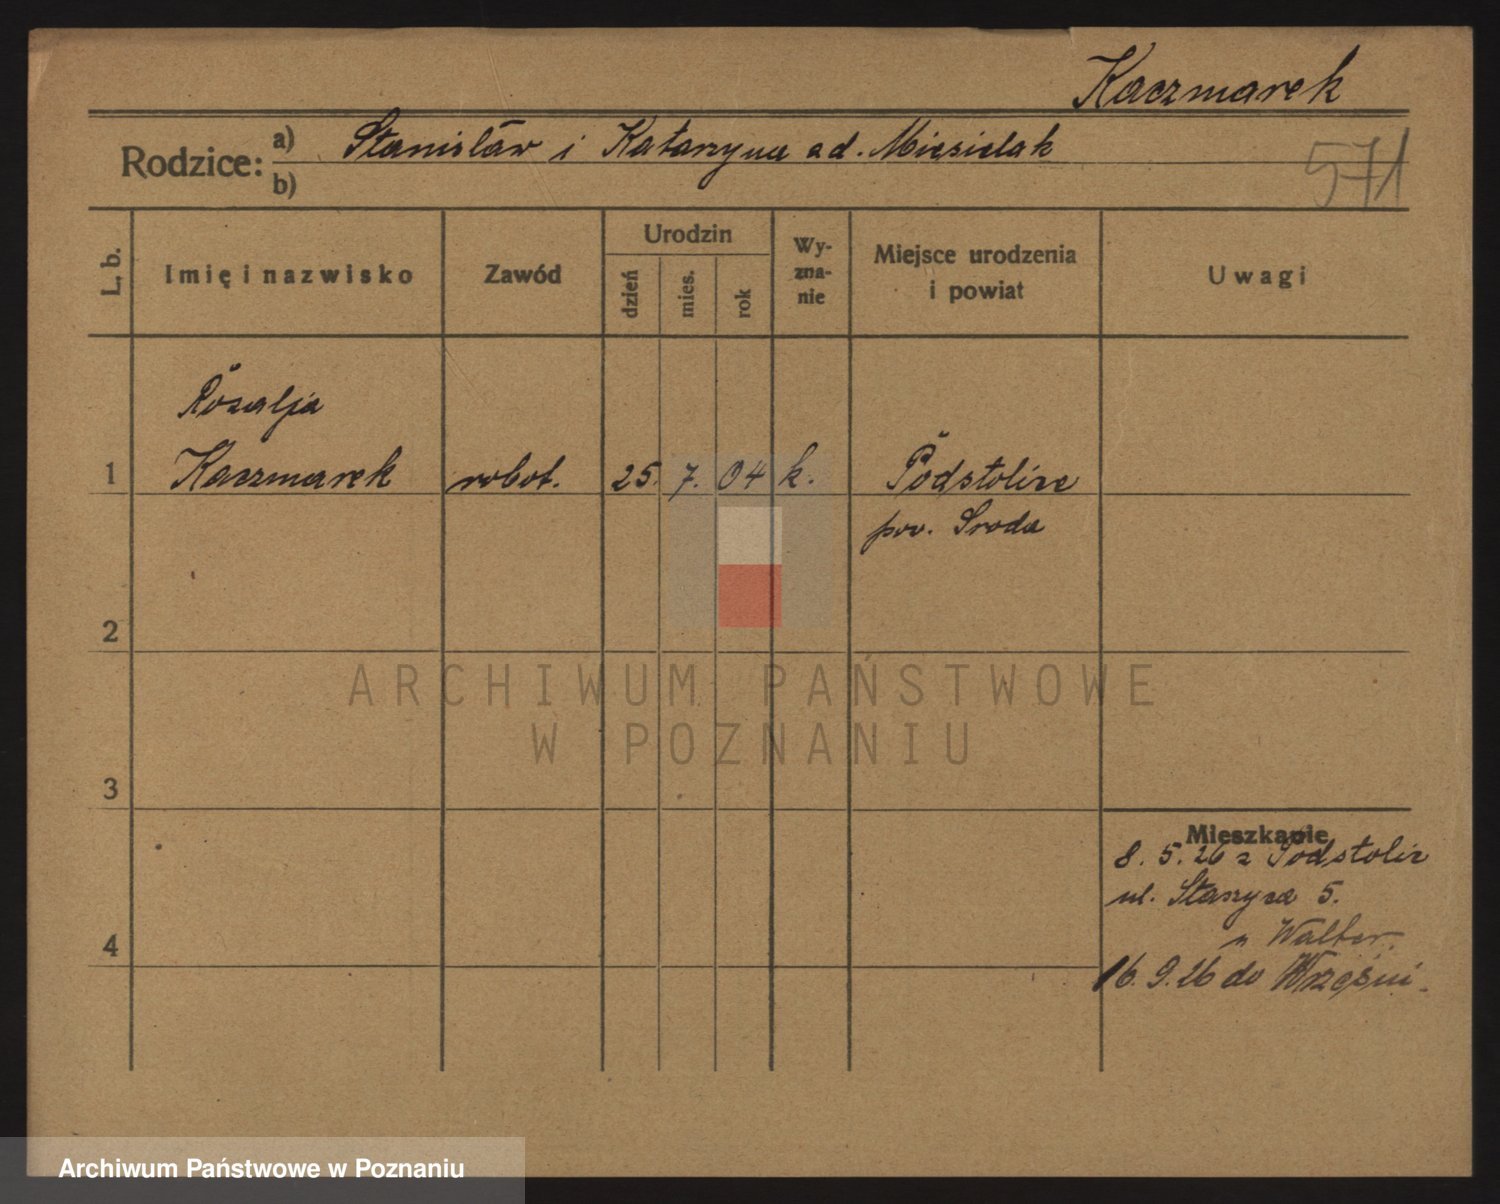 Kaczmarek
Rodzice: a) Stanisław i Katarzyna ad. Miesielak
b)
571
L. b.
Imię i nazwisko
Zawód
Urodzin
dzień
mies.
rok
Wy-
zna-
nie
Miejsce urodzenia
i powiat
Uwagi
Rozalja
1 Kaczmarek robot. 25. 7. 04 k. Podstolice
pow. Sroda
2
ARCHIWUM PAŃSTWOWE
W POZNANIU
3
Mieszkanie
8. 5. 26 z Podstolic
ul. Staszyca 5.
u Walter.
4
16. 9. 26 do Wrześni.
Archiwum Państwowe w Poznaniu